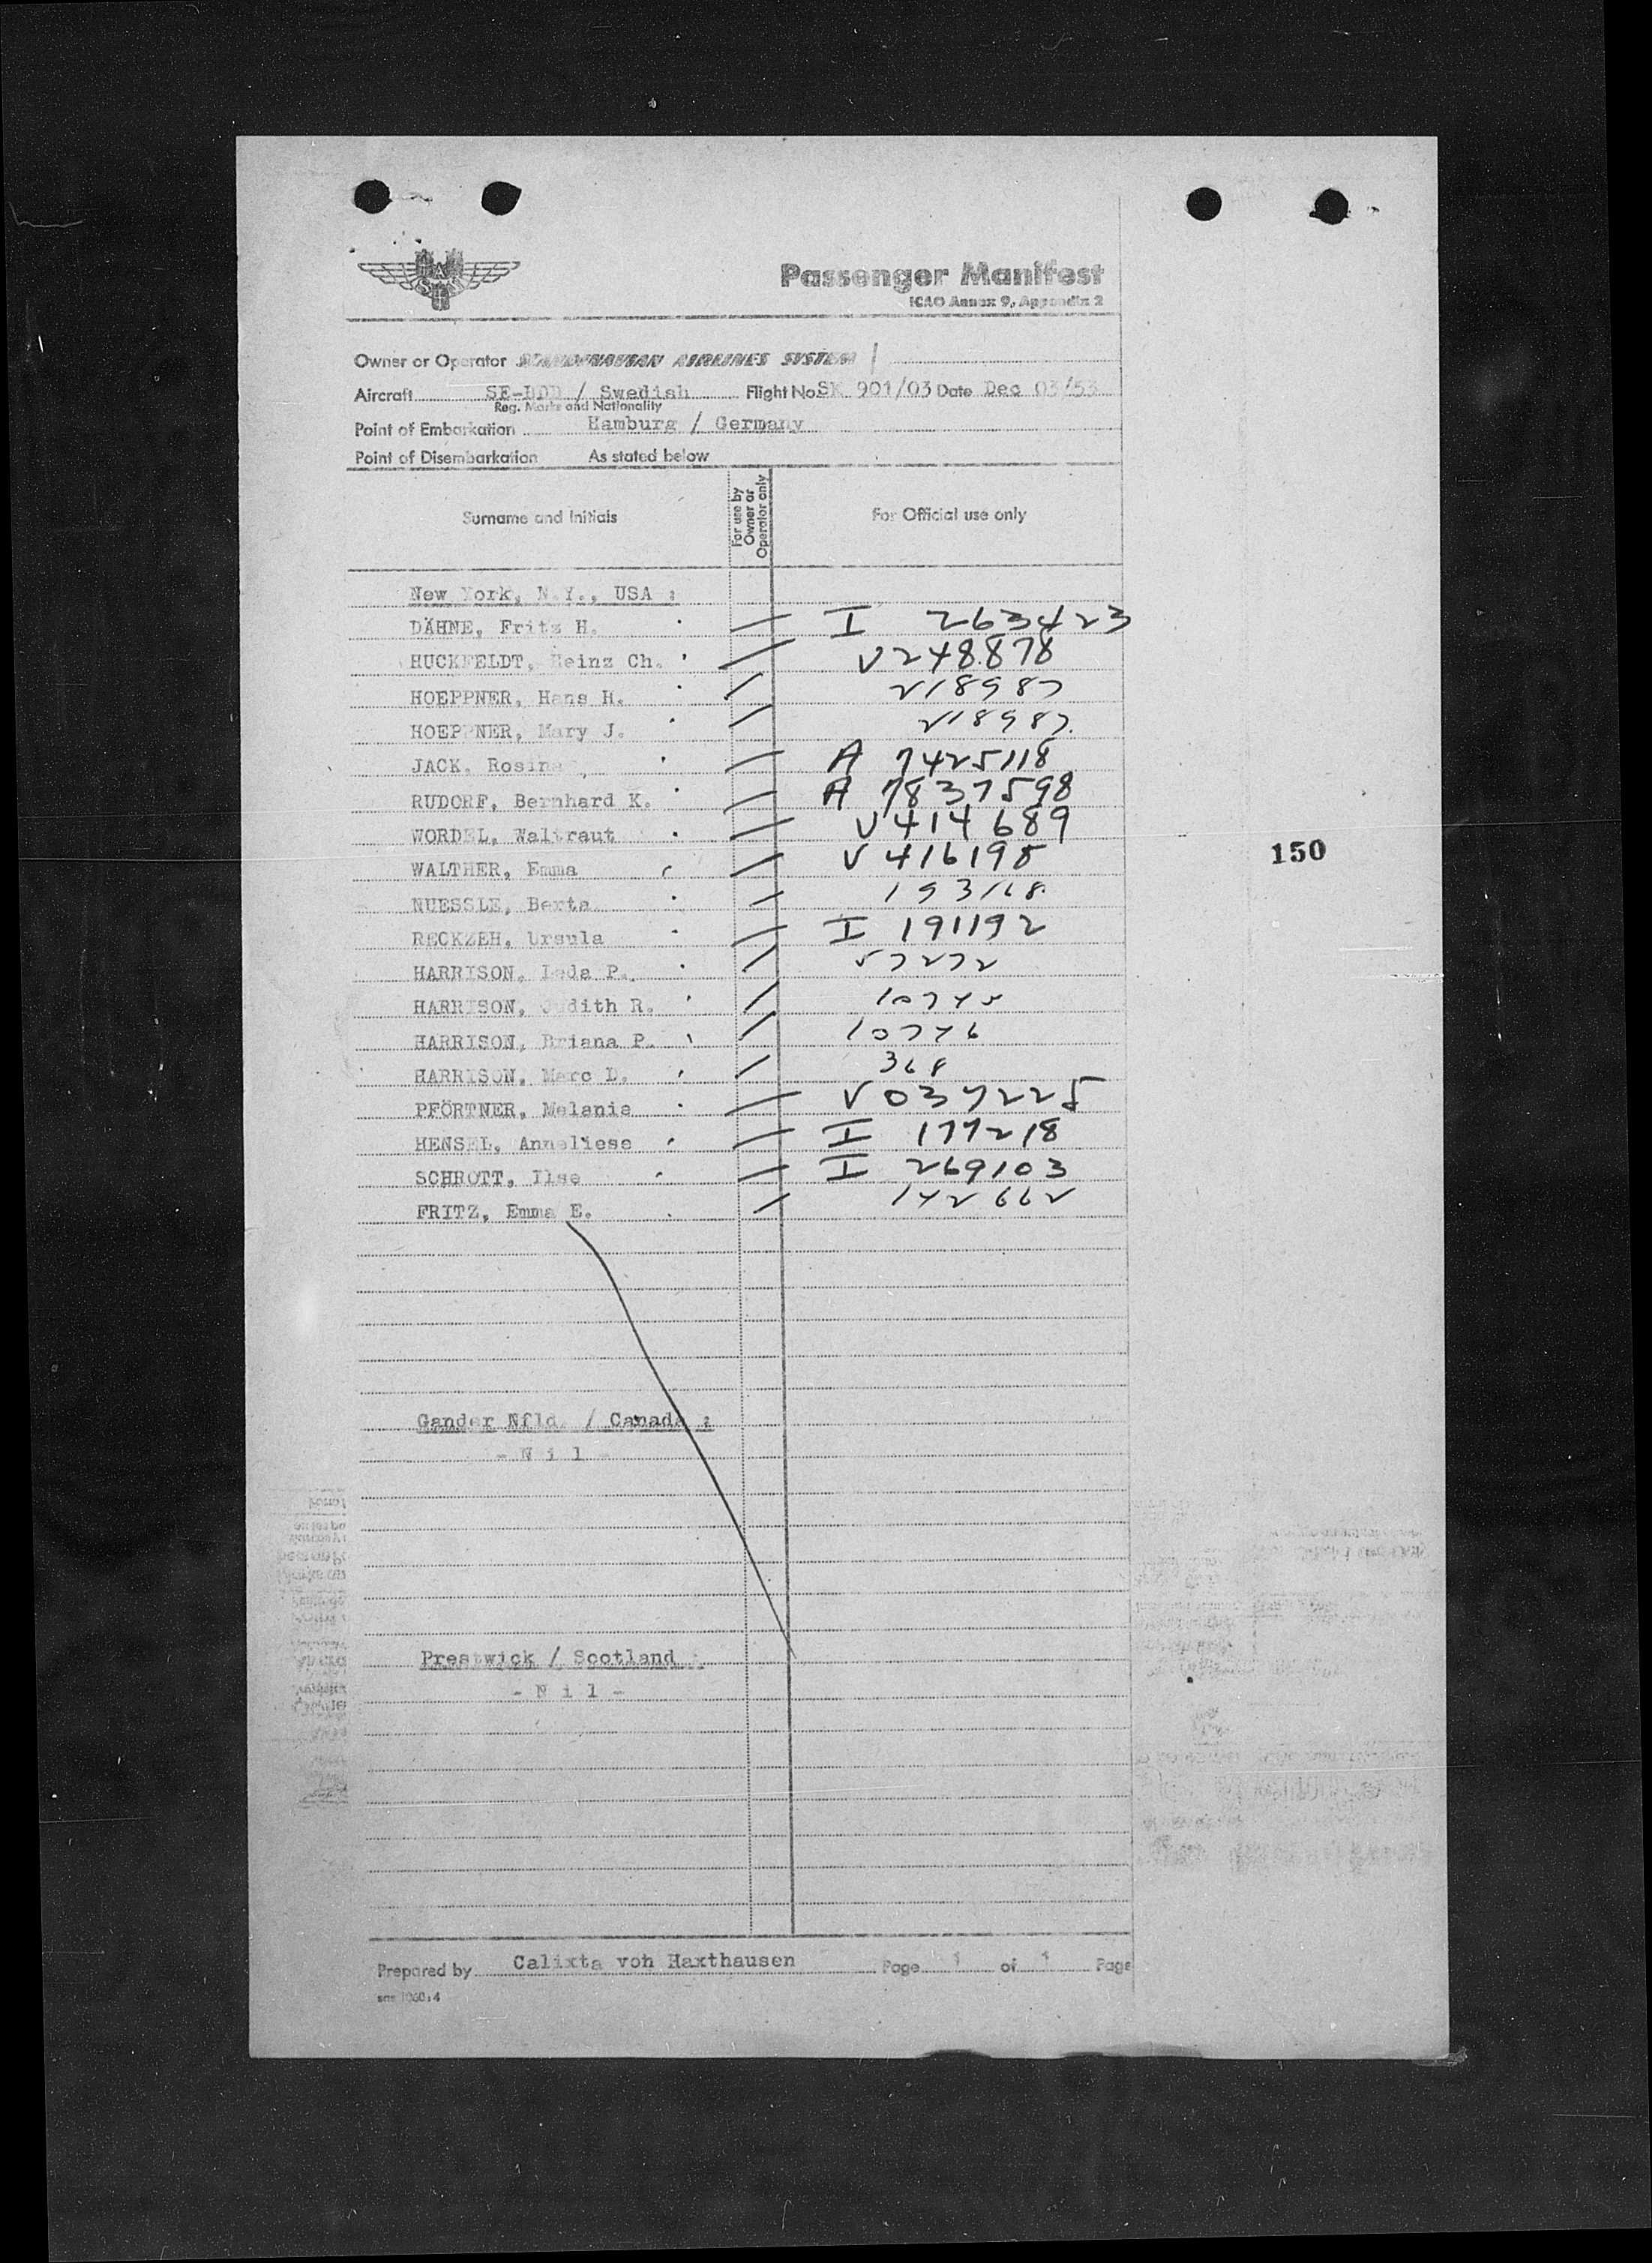 SAS
Passenger Manifest
ICAO Annex 9, Appendix 2
Owner or Operator SCANDINAVIAN AIRLINES SYSTEM
Aircraft SE-BDD / Swedish Flight No. SK 901/03 Date Dec 03/53
Reg. Marks and Nationality
Point of Embarkation Hamburg / Germany
Point of Disembarkation As stated below
Surname and Initials For use by Owner or Operator only For Official use only
New York, N.Y., USA :
DÄHNE, Fritz H. I 263423
HUCKFELDT, Heinz Ch. V248878
HOEPPNER, Hans H. 218987
HOEPPNER, Mary J. 218987
JACK. Rosina A 7425118
RUDORF, Bernhard K. A 7837598
WORDEL, Waltraut V414689
WALTHER, Emma V 416195
NUESSLE, Berta 193118
RECKZEH, Ursula I 191192
HARRISON, Leda P. 57272
HARRISON, Judith R. 10745
HARRISON, Briana P. 10746
HARRISON, Marc D. 368
PFÖRTNER, Melanie V 0347225
HENSEL, Anneliese I 177218
SCHROTT, Ilse I 269103
FRITZ, Emma E. 142662
150
Gander Nfld. / Canada :
- N i l -
Prestwick / Scotland :
- N i l -
Prepared by Calixta von Haxthausen Page 1 of 1 Page
sas 1060:4